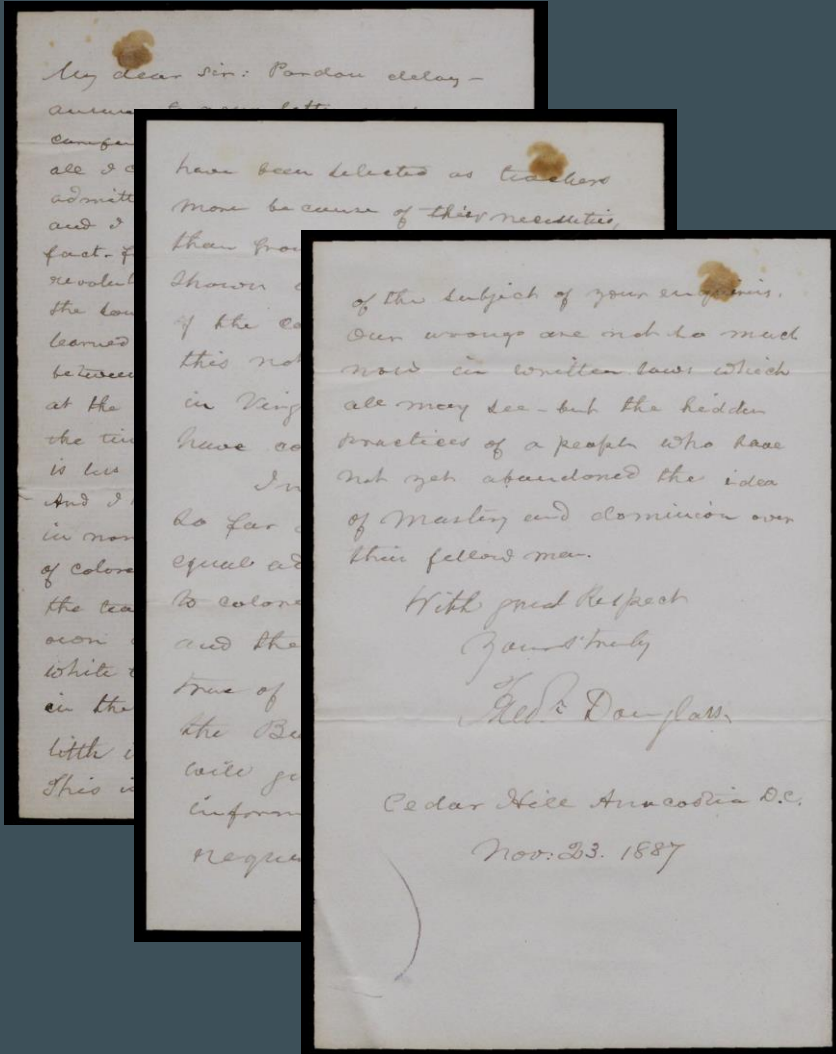 My dear Sir: Pardon delay -
all I
admitt
and I
fact - f
revolut
the sou
learned
between
at the
the tim
is his
And I
in nor
of colore
the tea
own
white
in the
little
This is
have been selected as teachers
more because of their necessities,
than from
Shown
of the co
this not
in Virg
have
In
So far
equal ad
to colore
and the
true of
the Bu
will
inform
reque
of the Subject of your enquiries.
Our wrongs are not so much
now in written laws which
all may see - but the hidden
practices of a people who have
not yet abandoned the idea
of Mastery and dominion over
their fellow men.
With great Respect
Yours truly
Fredk Douglass.
Cedar Hill Anacostia D.C.
Nov. 23. 1887